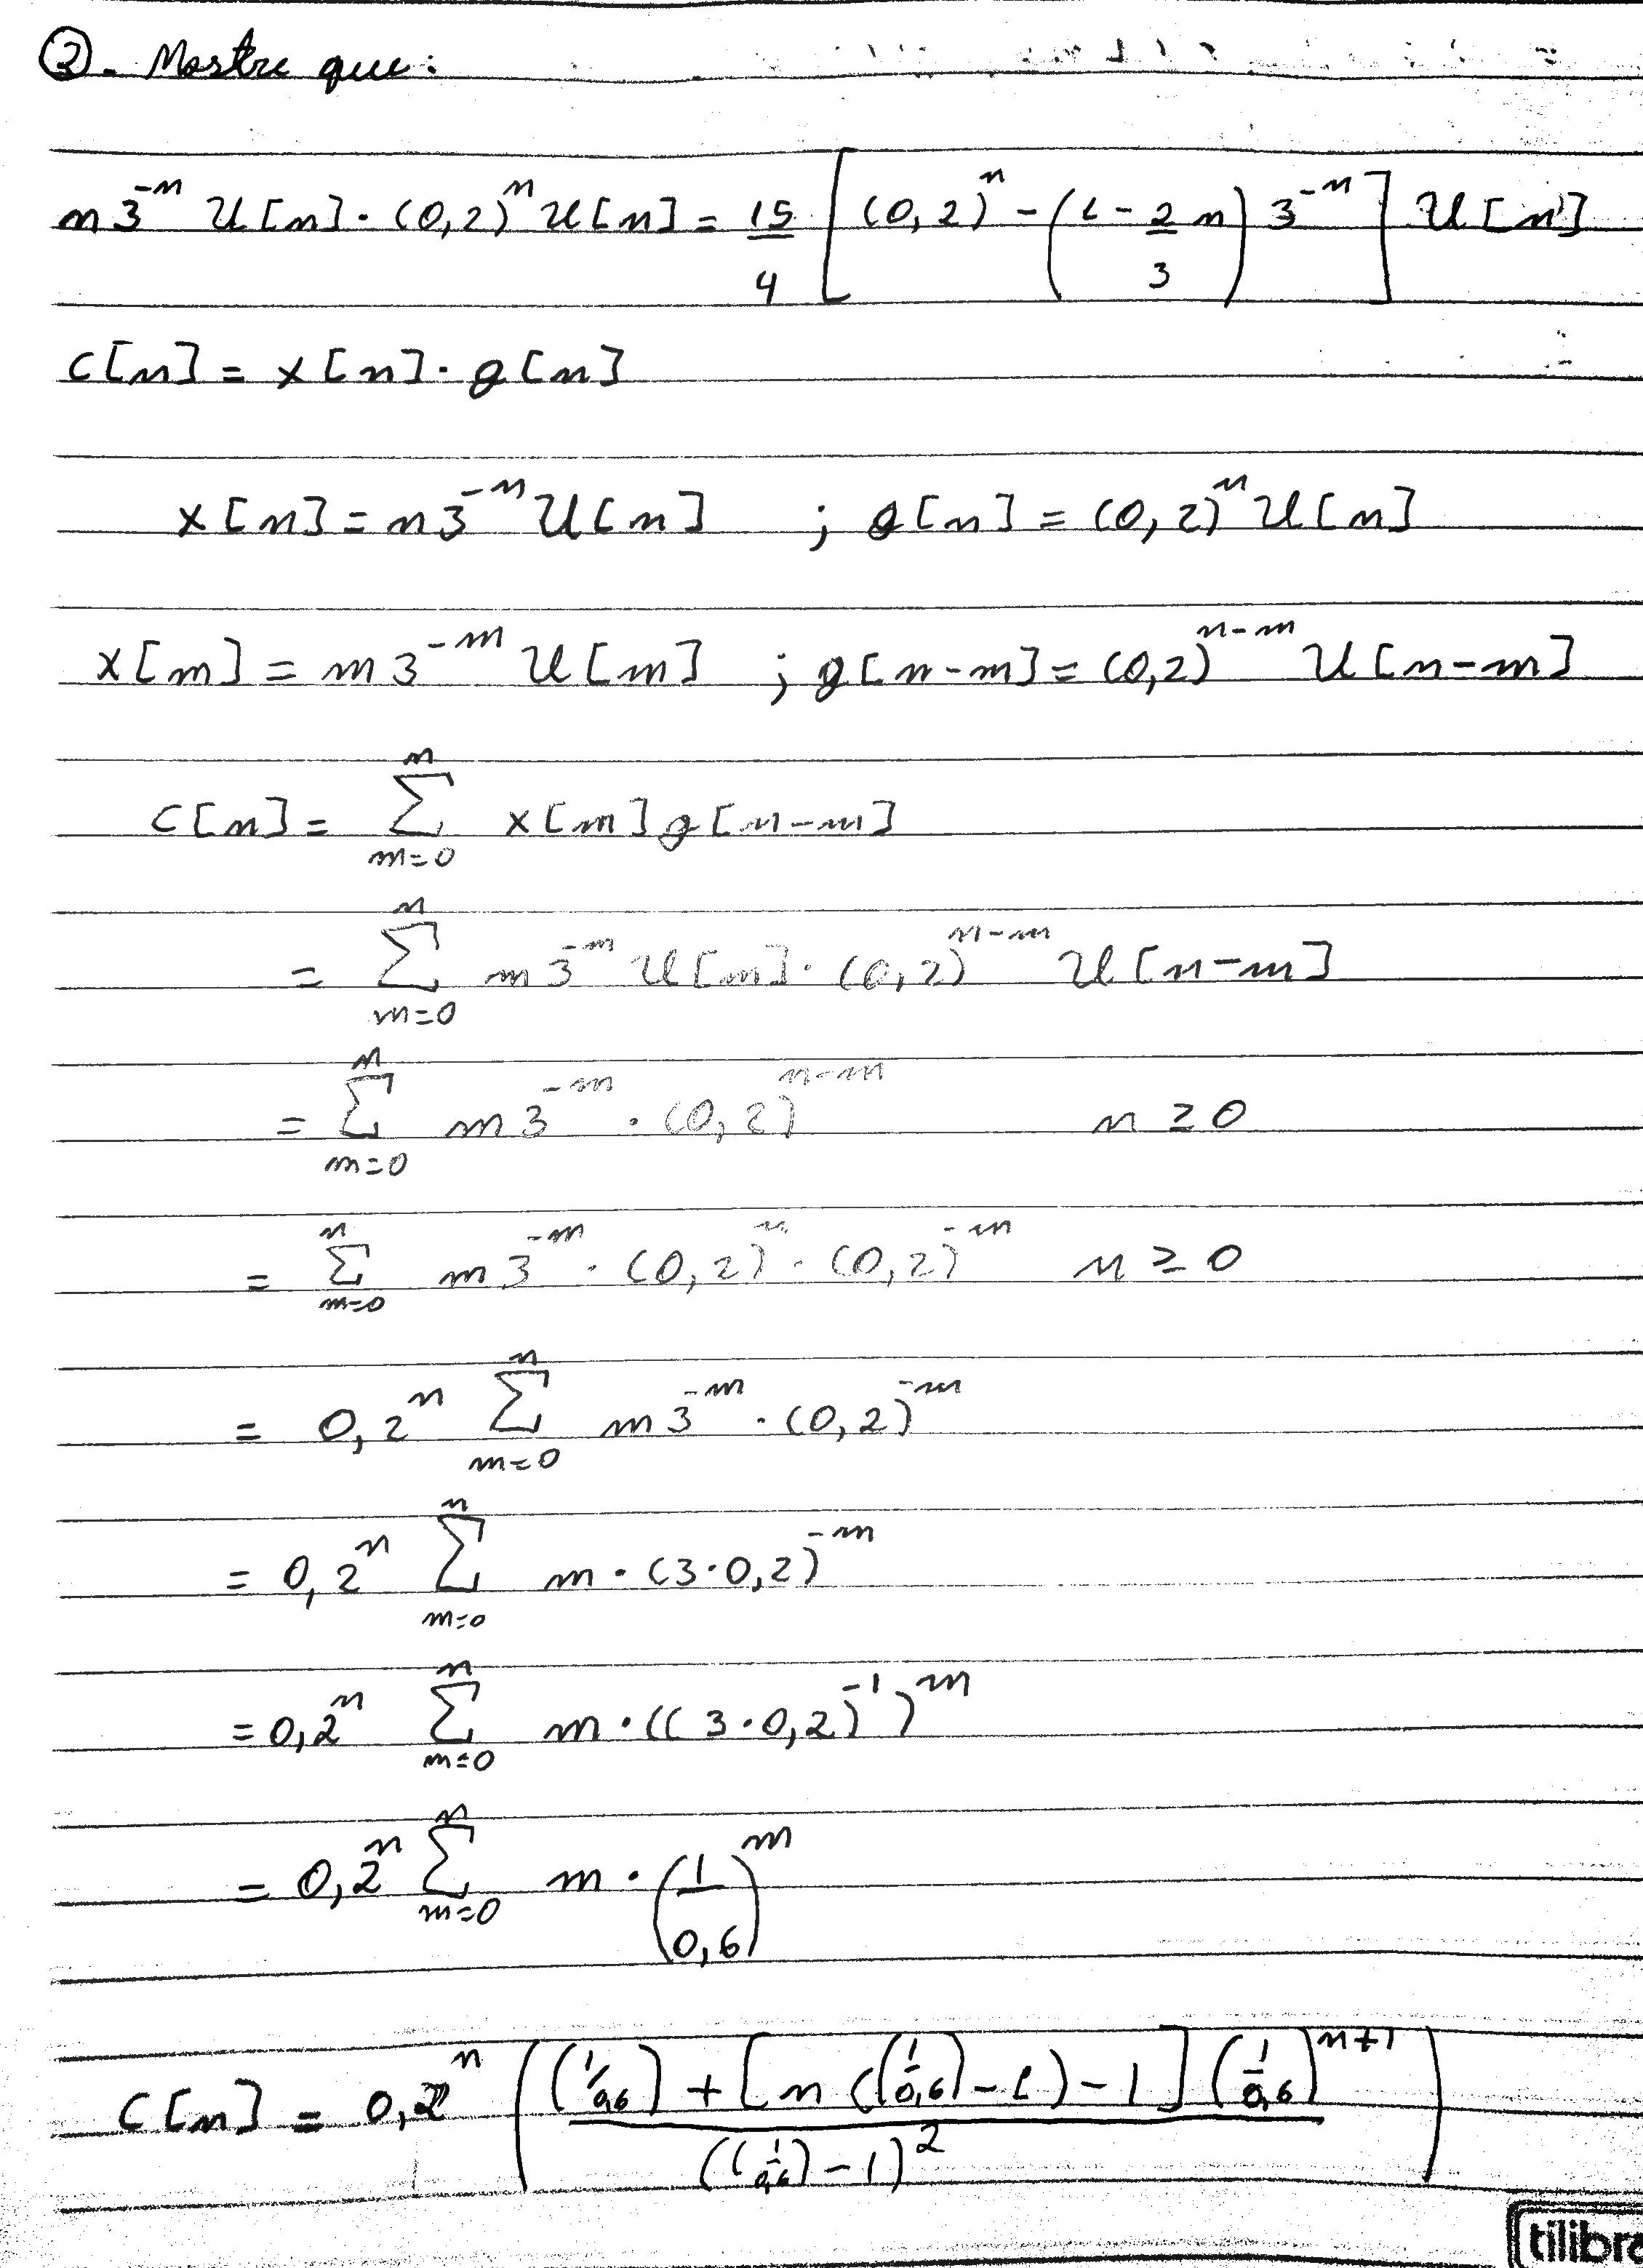 ②. Mostre que:
n3^{-n} U[n] · (0,2)^n U[n] = 15/4 [(0,2)^n - (1 - 2/3 n) 3^{-n}] U[n]
c[n] = x[n] · g[n]
x[n] = n3^{-n} U[n] ; g[n] = (0,2)^n U[n]
x[m] = m3^{-m} U[m] ; g[n-m] = (0,2)^{n-m} U[n-m]
c[n] = ∑_{m=0}^{n} x[m] g[n-m]
= ∑_{m=0}^{n} m3^{-m} U[m] · (0,2)^{n-m} U[n-m]
= ∑_{m=0}^{n} m3^{-m} · (0,2)^{n-m} n ≥ 0
= ∑_{m=0}^{n} m3^{-m} · (0,2)^n · (0,2)^{-m} n ≥ 0
= 0,2^n ∑_{m=0}^{n} m3^{-m} · (0,2)^{-m}
= 0,2^n ∑_{m=0}^{n} m · (3·0,2)^{-m}
= 0,2^n ∑_{m=0}^{n} m · ((3·0,2)^{-1})^m
= 0,2^n ∑_{m=0}^{n} m · (1/0,6)^m
C[n] = 0,2^n ( ( (1/0,6) + [n((1/0,6) - 1) - 1] (1/0,6)^{n+1} ) / ((1/0,6) - 1)^2 )
tilibra